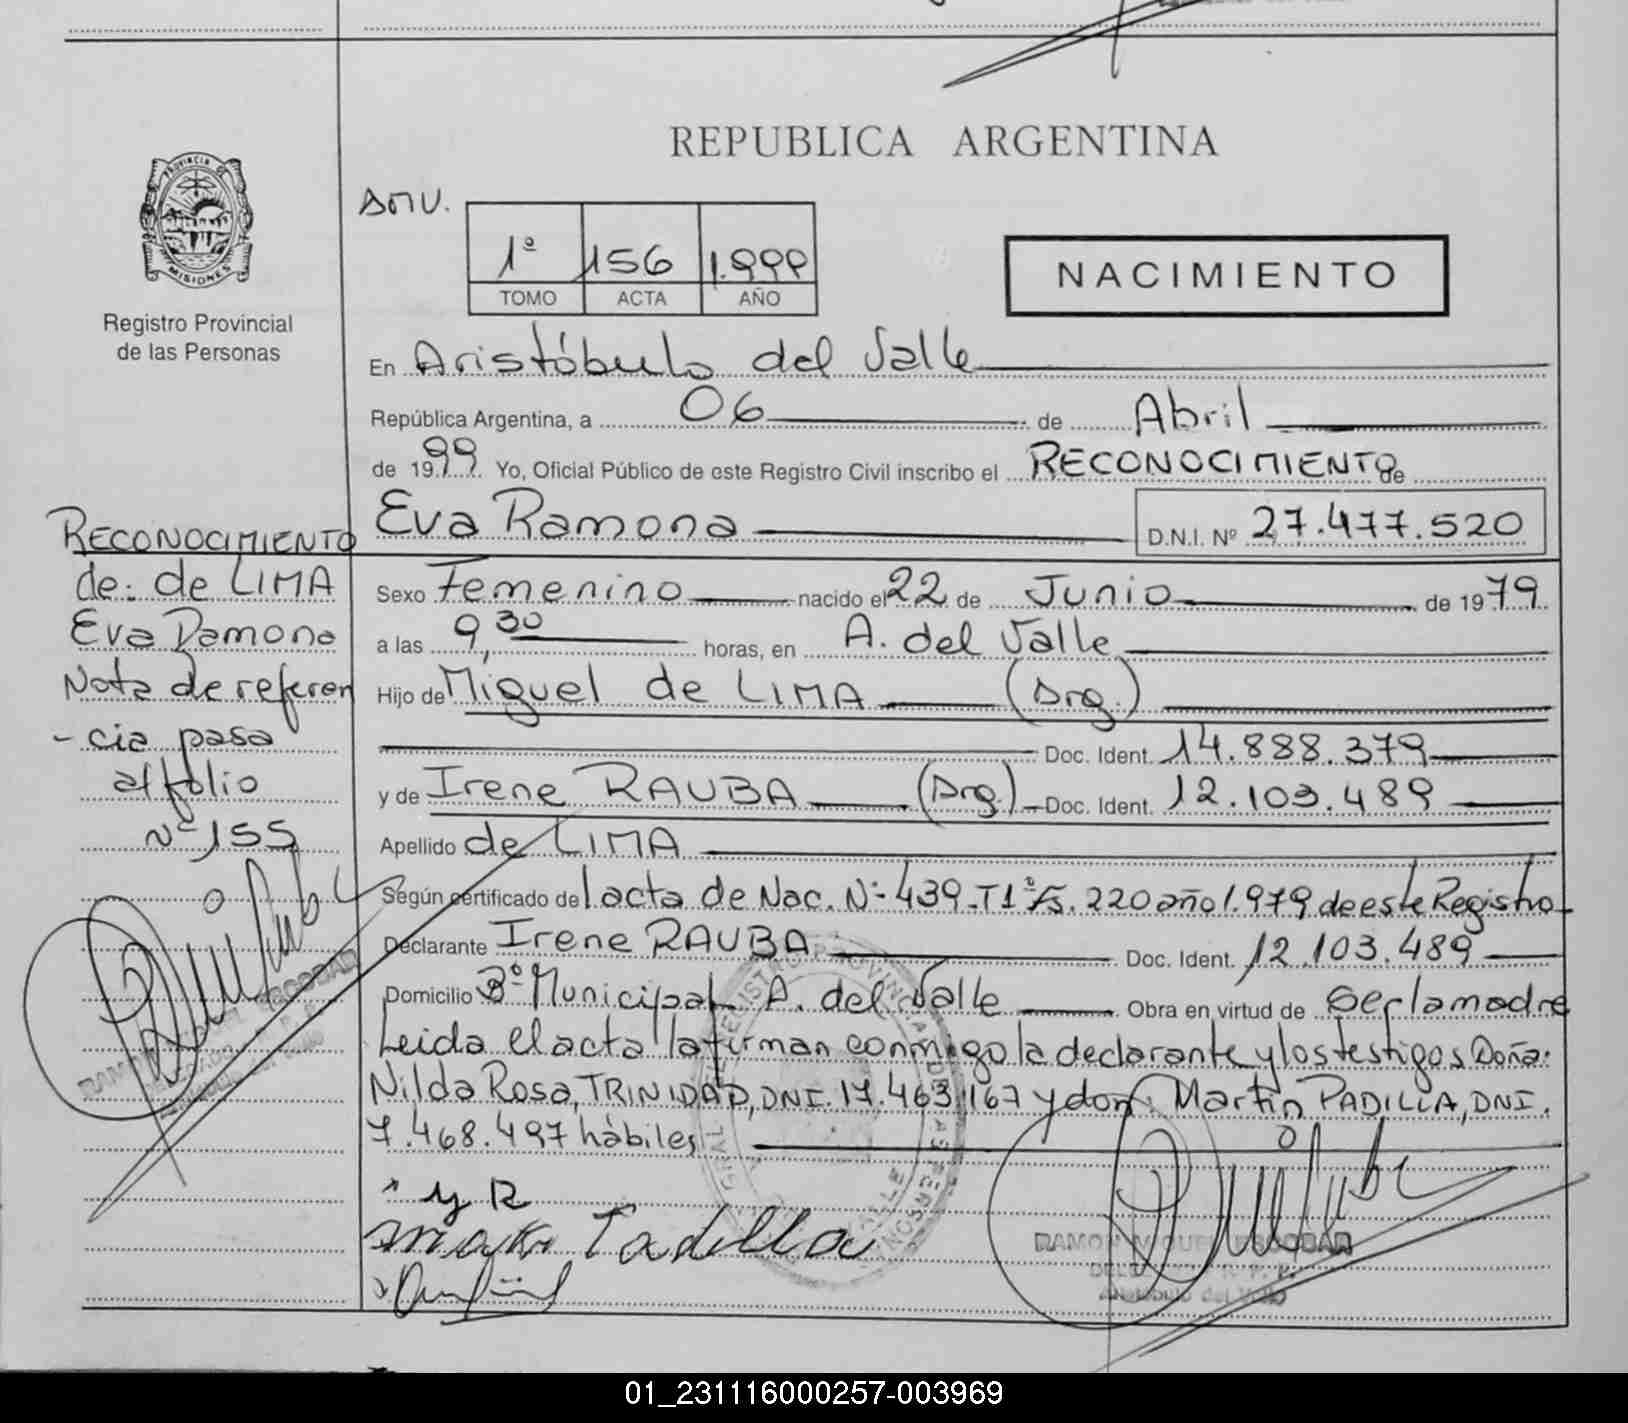 REPUBLICA ARGENTINA
PROVINCIA
MISIONES
Registro Provincial
de las Personas
1º 156 1.999
TOMO ACTA AÑO
NACIMIENTO
En Aristóbulo del Valle
República Argentina, a 06 de Abril
de 1999. Yo, Oficial Público de este Registro Civil inscribo el RECONOCIMIENTO de
Eva Ramona D.N.I. Nº 27.477.520
Sexo Femenino nacido el 22 de Junio de 1979
a las 9,30 horas, en A. del Valle
Hijo de Miguel de LIMA (Arg.)
Doc. Ident. 14.888.379
y de Irene RAUBA (Arg.) Doc. Ident. 12.103.489
Apellido de LIMA
Según certificado del acta de Nac. Nº 439-T1º Fs. 220 año 1.979 de este Registro
Declarante Irene RAUBA Doc. Ident. 12.103.489
Domicilio Bº Municipal A. del Valle Obra en virtud de ser la madre
Leida el acta la firman conmigo la declarante y los testigos Doña:
Nilda Rosa, TRINIDAD, DNI. 17.463.167 y don: Martin PADILLA, DNI.
7.468.497 hábiles
RECONOCIMIENTO
de: de LIMA
Eva Ramona
Nota de referen
-cia pasa
al folio
Nº 155
RAMON MIGUEL ESCOBAR
Aristóbulo del Valle
RAMON MIGUEL ESCOBAR
01_231116000257-003969